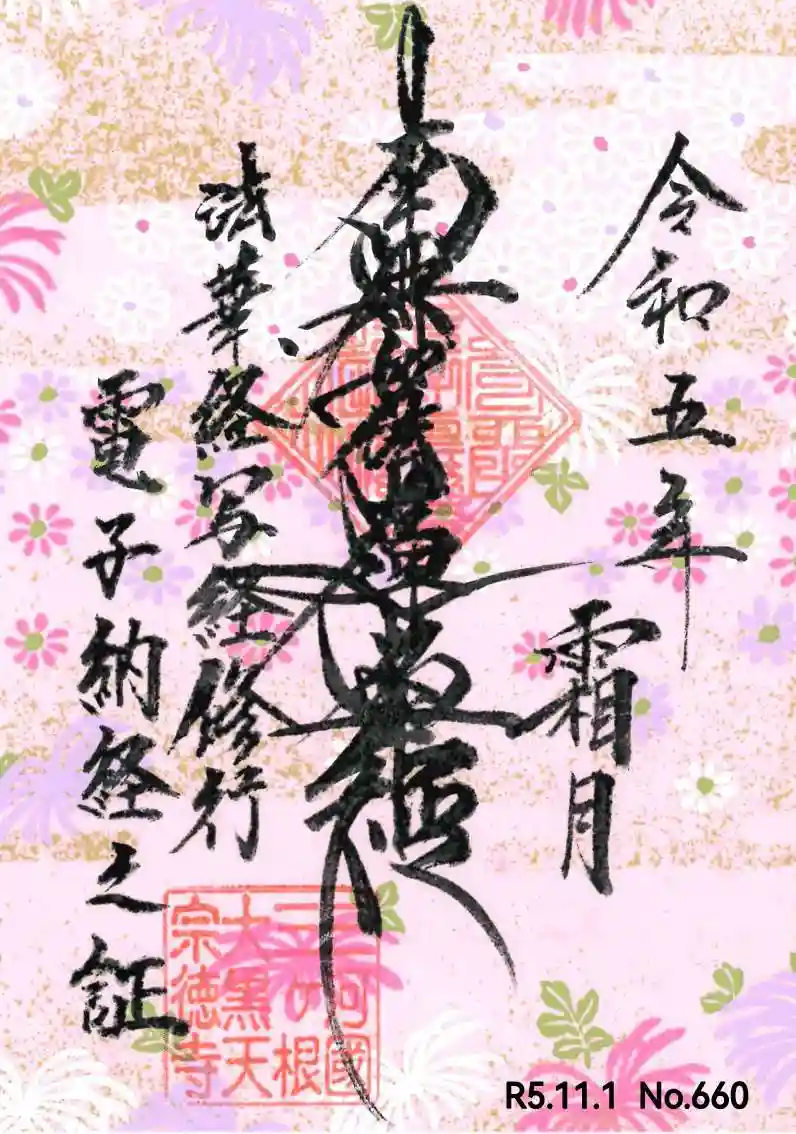 令和五年
霜月
南無妙法蓮華経
法華経写経修行
電子納経之証
三河國
の根
大黒天
宗徳寺
R5.11.1 No.660